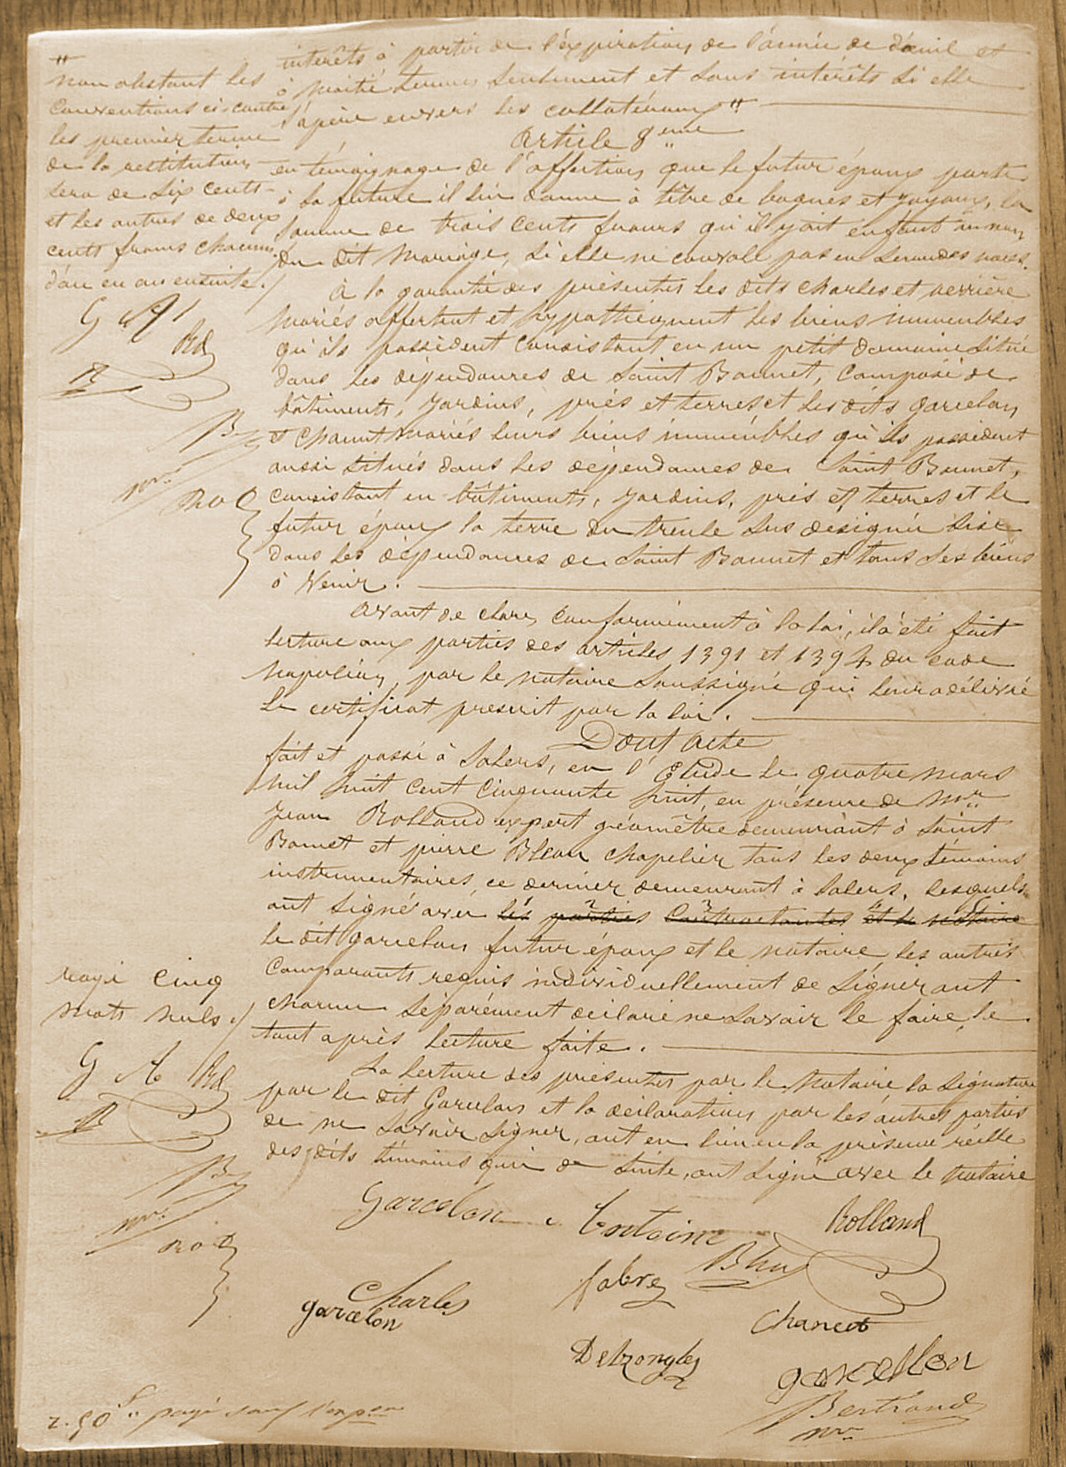 intérêts à partir de l'expiration de l'année de deuil et
à moitié terme seulement et sans intérêts si elle
s'opère envers les collatéraux #
Article 8eme
en témoignage de l'affection que le futur époux porte
à la future il lui donne à titre de bagues et joyaux, la
somme de trois cents francs qu'il y ait enfant ou non
du dit mariage, si elle ne convole pas en secondes noces.
à la garantie des présentes les dits Charles et
mariés affectent et hypothèquent les biens immeubles
qu'ils possèdent consistant en un petit domaine situé
dans les dépendances de Saint Bonnet, composé de
bâtiments, jardins, prés et terres et les dits Garcelon
et Chanut mariés leurs biens immeubles qu'ils possèdent
aussi situés dans les dépendances de Saint Bonnet,
consistant en bâtiments, jardins, prés et terres et le
futur époux la terre du sus designée sise
dans les dépendances de Saint Bonnet et tous ses biens
à venir.
Avant de clore, conformément à la loi, il a été fait
lecture aux parties des articles 1391 et 1394 du code
Napoléon, par le notaire soussigné qui leur a délivré
le certificat prescrit par la loi.
Dont acte
fait et passé à Salers, en l'Etude le quatre mars
mil huit cent cinquante huit, en présence de Mr
Jean Rolland expert géomètre demeurant à Saint
Bonnet et pierre chapelier tous les deux témoins
instrumentaires, ce dernier demeurant à Salers, lesquels
ont signé avec les parties contractantes et le notaire
le dit garcelon futur époux et le notaire les autres
comparants requis individuellement de signer ont
chacun séparément déclaré ne savoir le faire, le
tout après lecture faite.
La lecture des présentes par le Notaire la signature
par le dit Garcelon et la déclaration par les autres parties
de ne savoir signer, ont eu lieu en la présence réelle
des dits témoins qui de suite, ont signé avec le notaire
#
non obstant les
conventions ci-contre
les premier terme
de la restitution
sera de six cents
et les autres de deux
cents francs chacun
d'an en an ensuite./
G A
Rd
B
B
nre
RO
rayé cinq
mots nuls./
G A Rd
B
B
nre
RO
Garcelon Antoine Rolland
fabre
Charles
garcelon
Chanut
Delzongles
garcellon
Bertrand
nre
2.50